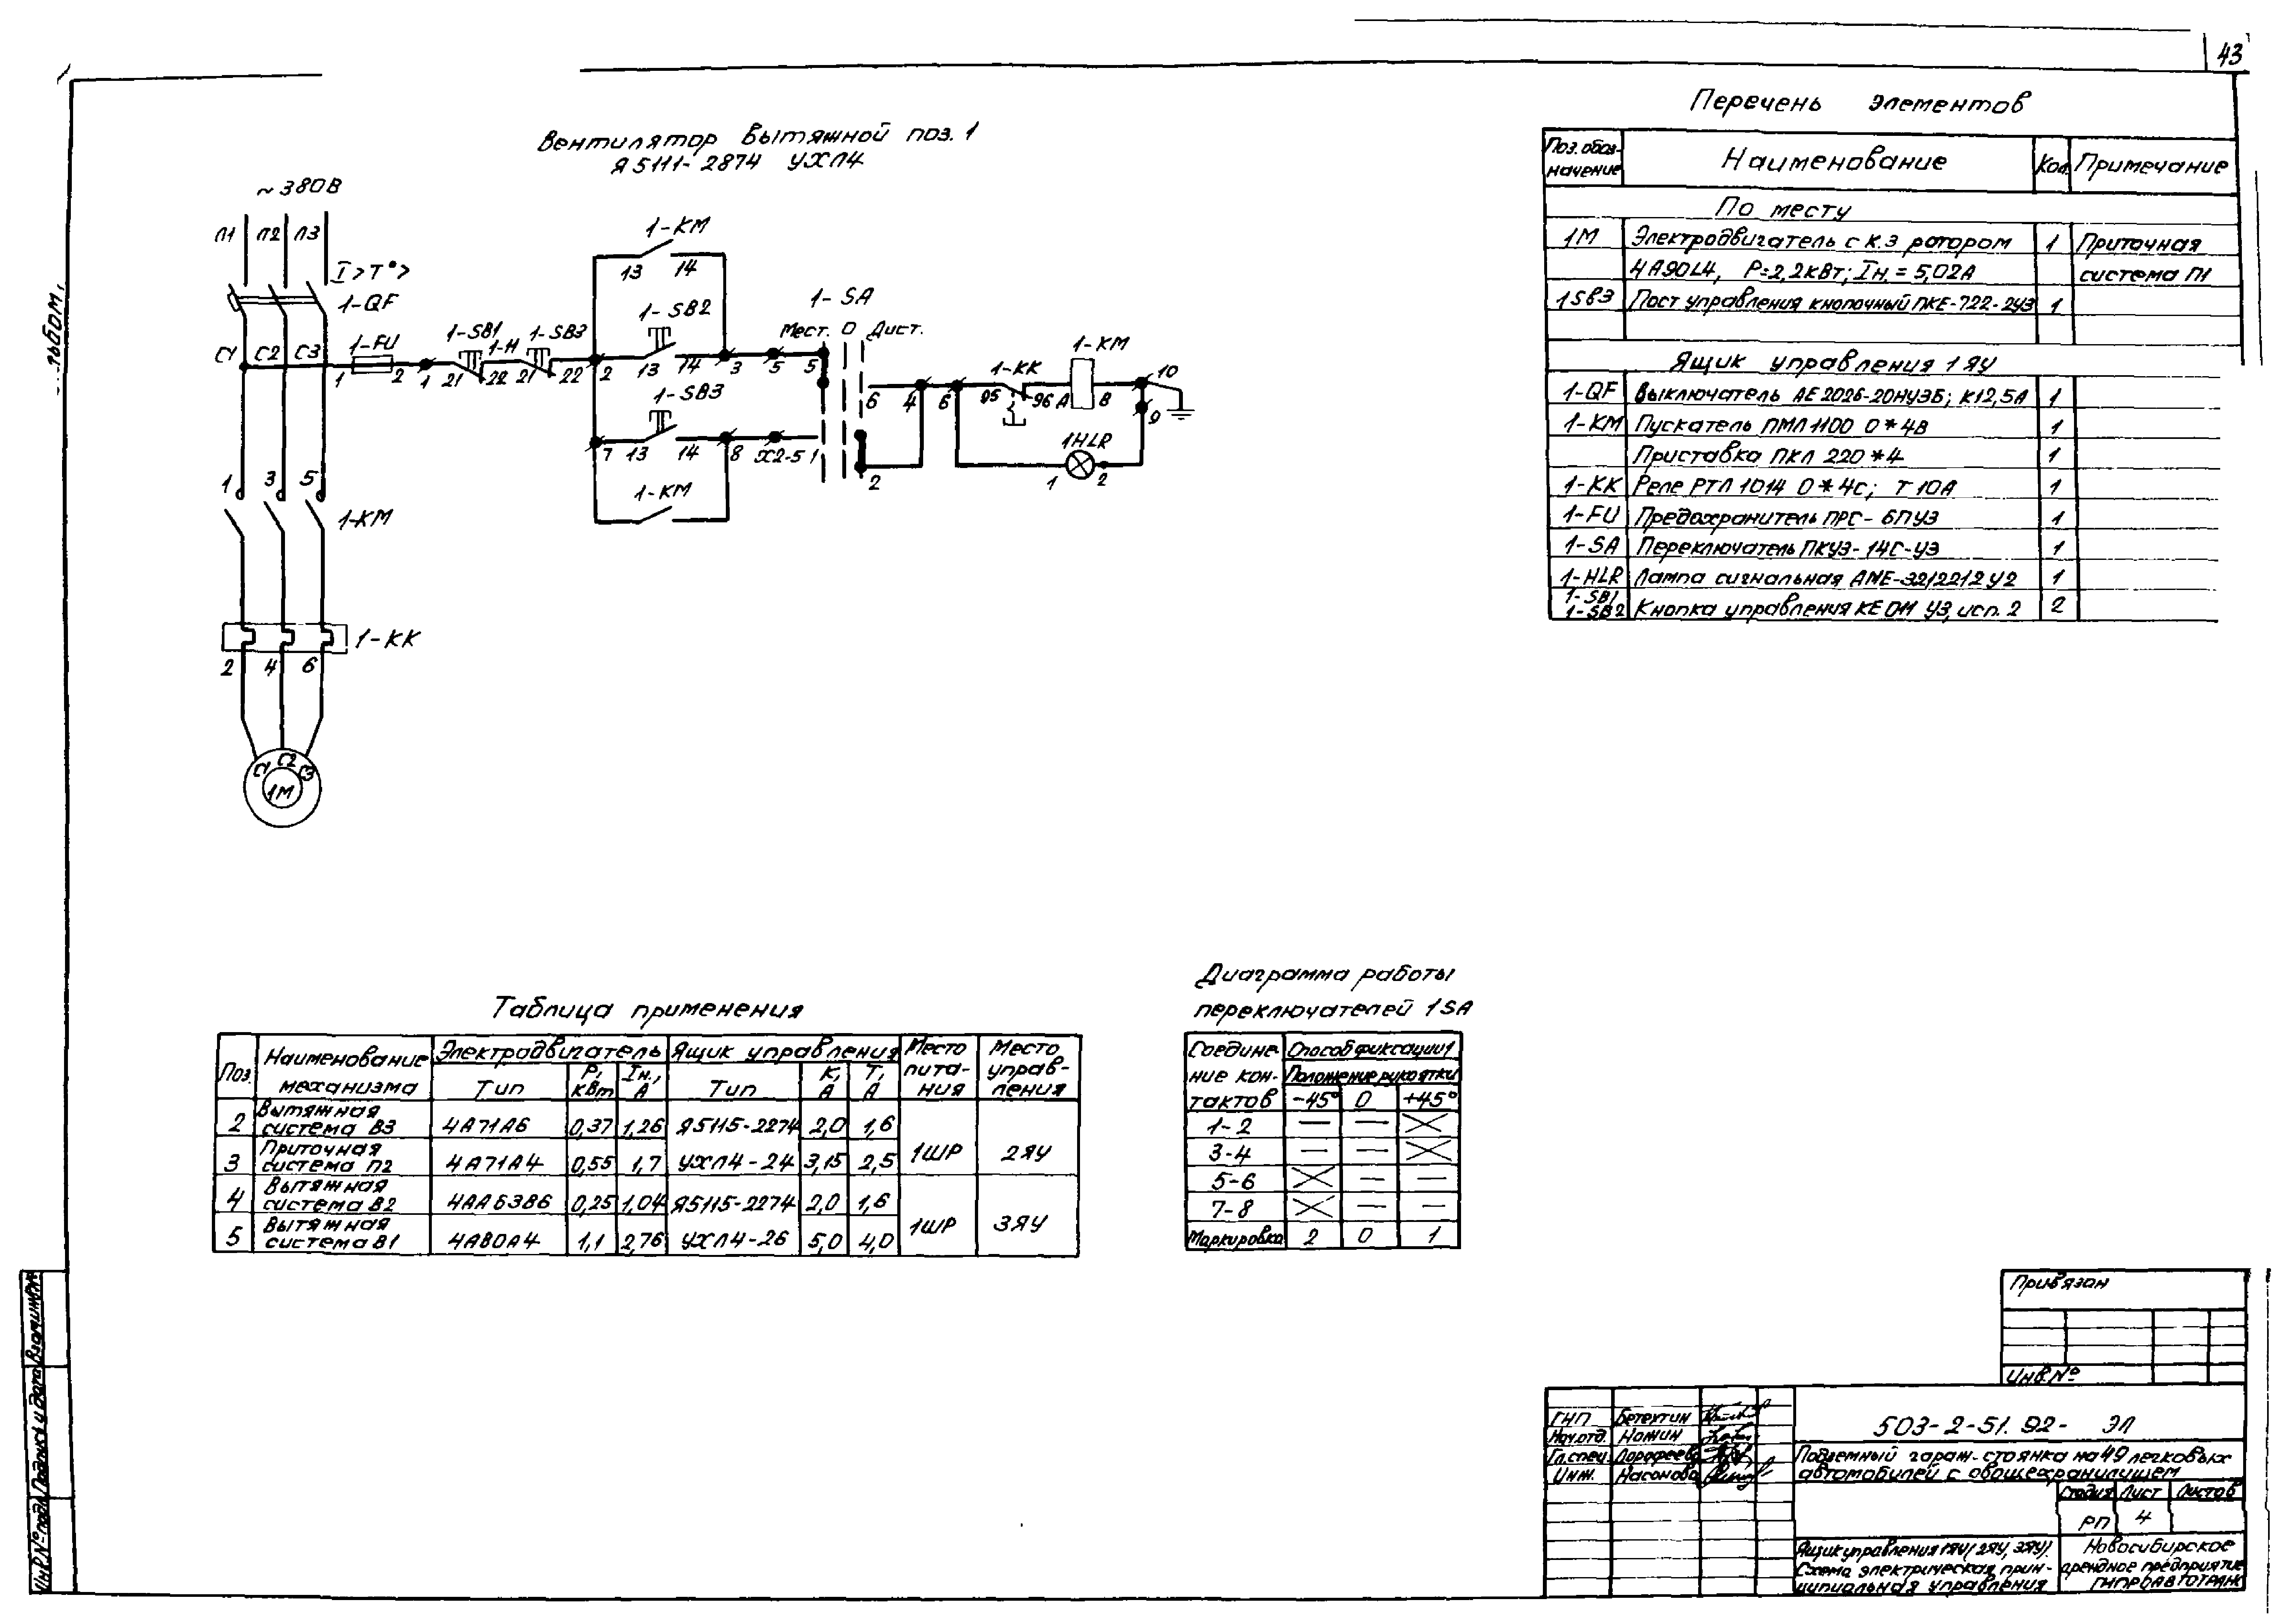 43
Вентилятор вытяжной поз. 1
Я5111-2874 УХЛ4
~380В
Л1 Л2 Л3
I> T°>
1-QF
С1 С2 С3
1 1-FU 2 1
1-SB1
21 22
1-Н
1-SB3
21 22
2
1-КМ
13 14
1-SB2
13 14 3 5 5
1-SB3
7 13 14 8 Х2-5 1
1-КМ
1-SA
Мест. О Дист.
6 4 6
2
1-КК
95 96
1-КМ
А В
10
9
1HLR
1 2
1 3 5
1-КМ
1-КК
2 4 6
С1 С2 С3
1М
Перечень элементов
Поз. обоз-
начение
Наименование
Кол.
Примечание
По месту
1М Электродвигатель с к.з ротором 1 Приточная
4А90L4, Р=2,2кВт; Iн.= 5,02А система П1
1SB3 Пост управления кнопочный ПКЕ-722-2У3 1
Ящик управления 1ЯУ
1-QF Выключатель АЕ2026-20НУ3Б; К12,5А 1
1-КМ Пускатель ПМЛ1100 О*4В 1
Приставка ПКЛ 220*4 1
1-КК Реле РТЛ1014 О*4С; Т10А 1
1-FU Предохранитель ПРС-6ПУ3 1
1-SA Переключатель ПКУ3-14С-У3 1
1-HLR Лампа сигнальная АМЕ-3212212У2 1
1-SB1
1-SB2 Кнопка управления КЕ011 У3, исп. 2 2
Таблица применения
Поз.
Наименование
механизма
Электродвигатель
Тип
Р, кВт
Iн., А
Ящик управления
Тип
К, А
Т, А
Место
пита-
ния
Место
управ-
ления
2 Вытяжная система В3 4А71А6 0,37 1,26 Я5115-2274 2,0 1,6
3 Приточная система П2 4А71А4 0,55 1,7 УХЛ4-24 3,15 2,5
1ШР 2ЯУ
4 Вытяжная система В2 4АА63В6 0,25 1,04 Я5115-2274 2,0 1,6
5 Вытяжная система В1 4А80А4 1,1 2,76 УХЛ4-26 5,0 4,0
1ШР 3ЯУ
Диаграмма работы
переключателей 1SA
Соедине-
ние кон-
тактов
Способ фиксации 1
Положение рукоятки
-45° 0 +45°
1-2 — — X
3-4 — — X
5-6 X — —
7-8 X — —
Маркировка 2 0 1
Привязан
Инв.№
ГИП
Нач.отд. Номин
Гл.спец. Дорофеева
Инж. Насонова
503-2-51.92- ЭЛ
Подземный гараж-стоянка на 49 легковых
автомобилей с овощехранилищем
Стадия Лист Листов
РП 4
Ящик управления 1ЯУ(2ЯУ, 3ЯУ)
Схема электрическая прин-
ципиальная управления
Новосибирское
арендное предприятие
ГИПРОАВТОТРАНС
Инв.№ подл. Подпись и дата Взам.инв.№